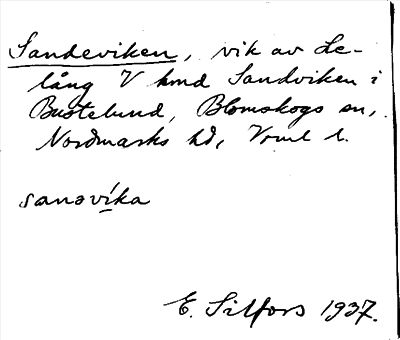 Sandeviken, vik av Le-
lång V hmd Sandviken i
Bustelund, Blomskogs sn,
Nordmarks hd, Vrml l.
sanovíka
E. Silfors 1937.